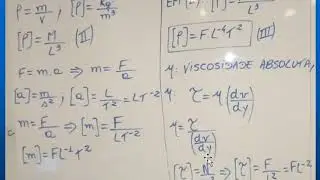 ρ = m/V , [ρ] = kg/m³
[ρ] = M/L³ (II)
F = m.a ⇒ m = F/a
[a] = m/s² , [a] = L/T² = LT⁻²
m = F/a ⇒ [m] = F/LT⁻²
[m] = FL⁻¹T²
[ρ] = FL⁻⁴T²
μ: VISCOSIDADE ABSOLUTA,
μ: τ = μ(dv/dy)
μ = τ/(dv/dy)
[τ] = N/m² ⇒ [τ] = F/L² = FL⁻²